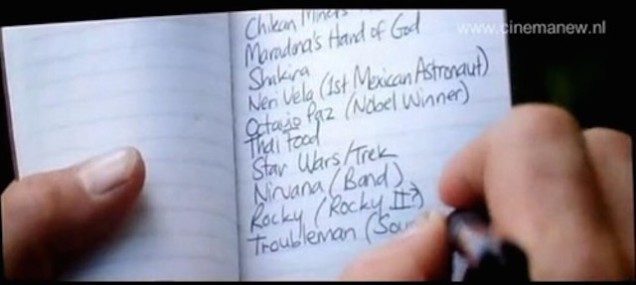 www.cinemanew.nl
Chilean Miners
Maradona's Hand of God
Shakira
Neri Vela (1st Mexican Astronaut)
Octavio Paz (Nobel Winner)
Thai Food
Star Wars/Trek
Nirvana (Band)
Rocky (Rocky II?)
Troubleman